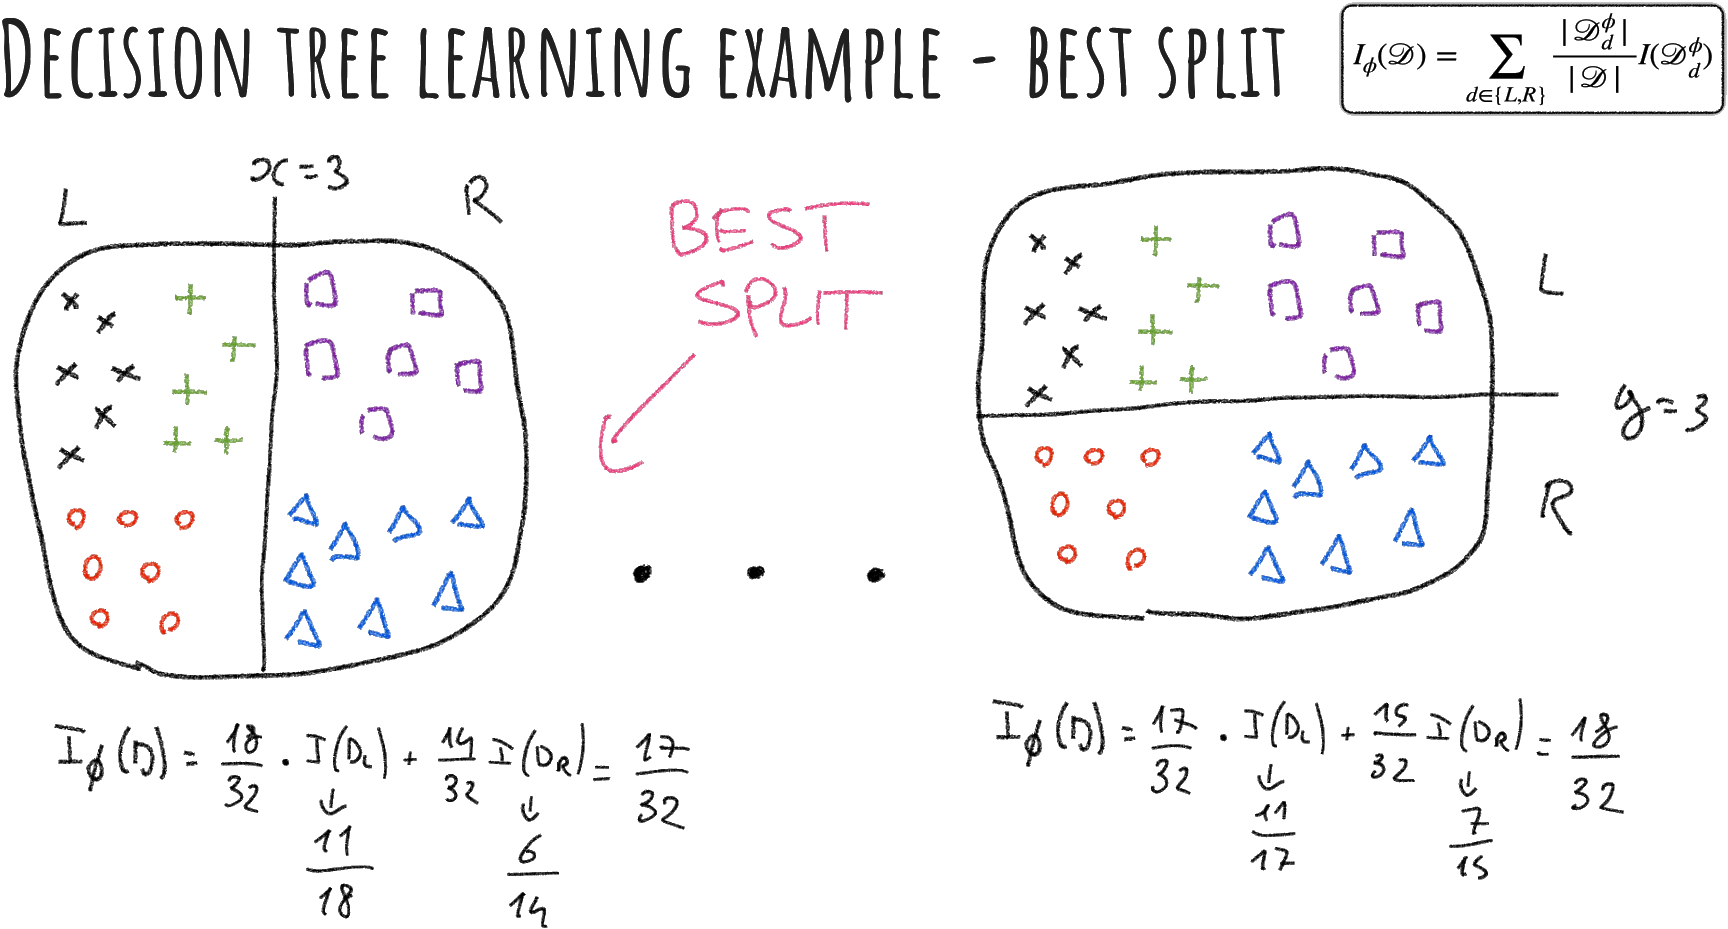 DECISION TREE LEARNING EXAMPLE - BEST SPLIT
I_ϕ(𝒟) = ∑_{d∈{L,R}} |𝒟_d^ϕ| / |𝒟| I(𝒟_d^ϕ)
x=3
L
R
BEST
SPLIT
L
y=3
R
I_ϕ(D) = 18/32 · I(D_L) + 14/32 I(D_R) = 17/32
↓ 11/18
↓ 6/14
I_ϕ(D) = 17/32 · I(D_L) + 15/32 I(D_R) = 18/32
↓ 11/17
↓ 7/15